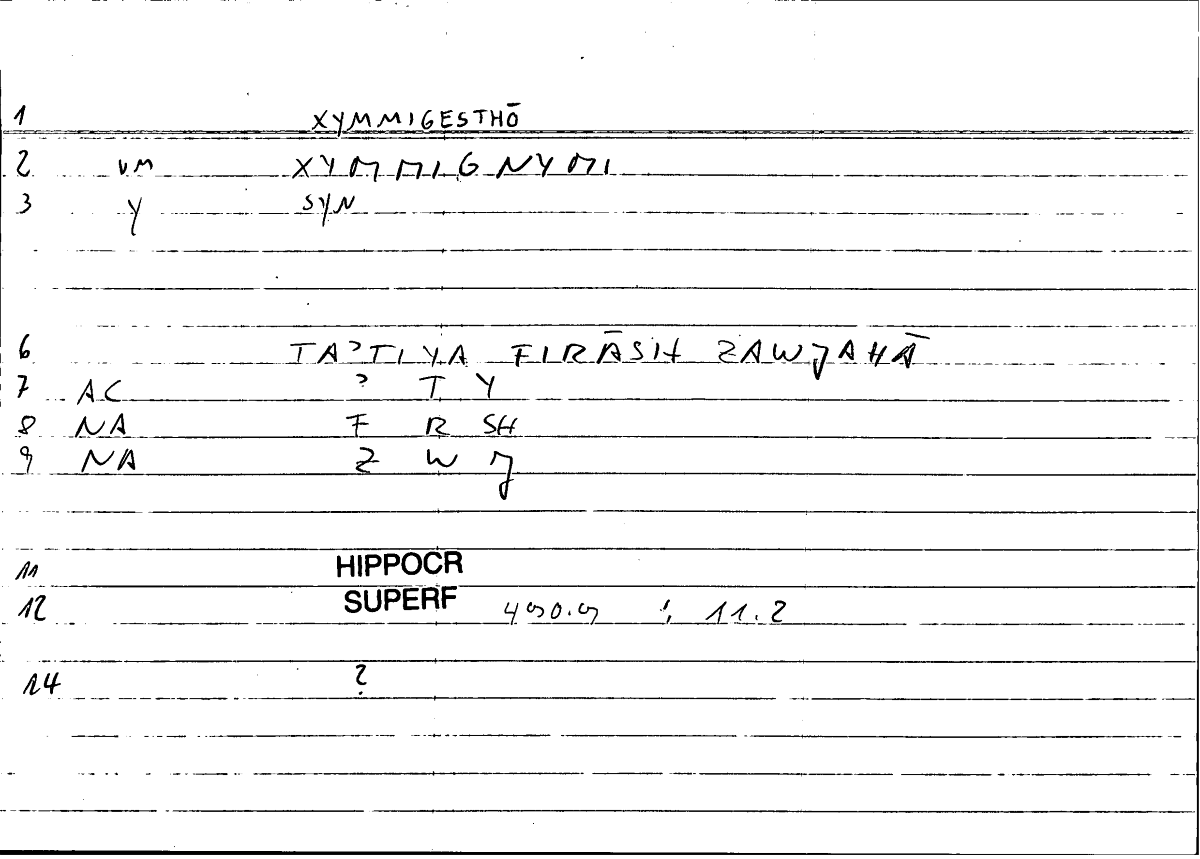 1 XYMMIGESTHŌ
2 VM XYMMIGNYMI
3 Y SYN
6 TAʾTIYA FIRĀSH ZAWJAHĀ
7 AC ʾ T Y
8 NA F R SH
9 NA Z W J
11 HIPPOCR
12 SUPERF 490.9 ; 11.2
14 ?